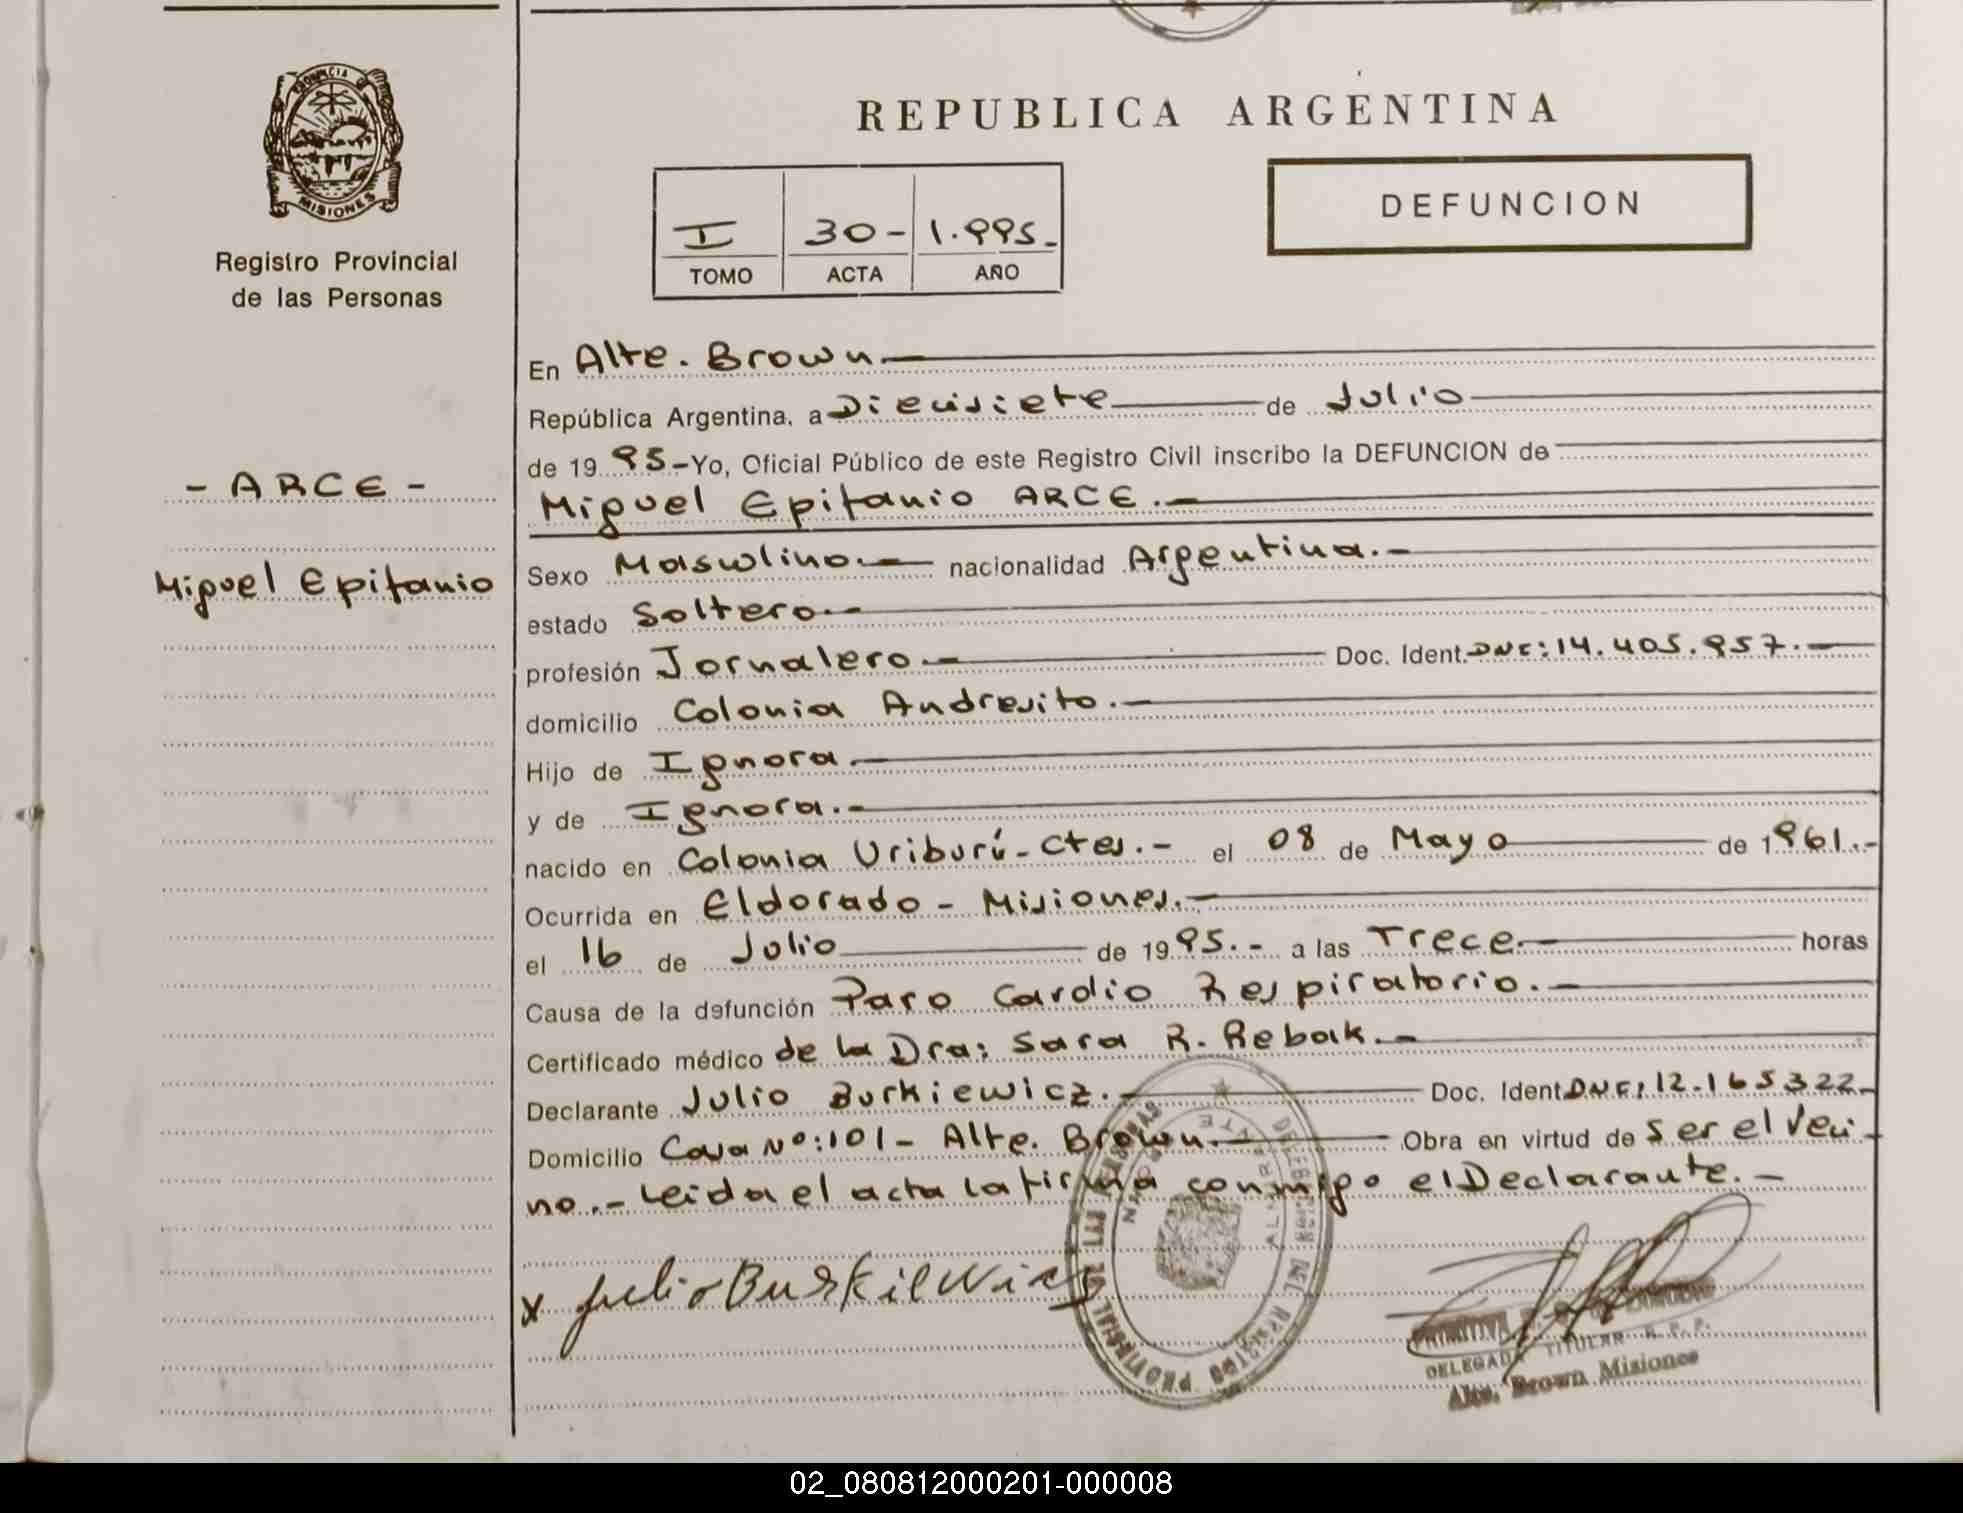 REPUBLICA ARGENTINA
PROVINCIA D
MISIONES
Registro Provincial
de las Personas
I 30- 1.995.-
TOMO ACTA AÑO
DEFUNCION
- ARCE -
Miguel Epifanio
En Alte. Brown.
República Argentina, a Diecisiete de Julio
de 19 95.- Yo, Oficial Público de este Registro Civil inscribo la DEFUNCION de
Miguel Epifanio ARCE.-
Sexo Masculino.- nacionalidad Argentina.-
estado Soltero.-
profesión Jornalero.- Doc. Ident. DNI: 14.405.957.-
domicilio Colonia Andresito.-
Hijo de Ignora.-
y de Ignora.-
nacido en Colonia Uriburú - Ctes.- el 08 de Mayo de 1961.-
Ocurrida en Eldorado - Misiones.-
el 16 de Julio de 1995.- a las Trece.- horas
Causa de la defunción Paro Cardio Respiratorio.-
Certificado médico de la Dra: Sara R. Rebak.-
Declarante Julio Burkiewicz.- Doc. Ident DNI: 12.165322-
Domicilio Casa Nº: 101 - Alte. Brown.- Obra en virtud de ser el Veci-
no.- Leida el acta la firma conmigo el Declarante.-
x Julio Burkiewicz
PROVINCIAL DE LAS PERSONAS
DEL REGISTRO
PRIMITIVA
DELEGADA TITULAR R. P. P.
Alte. Brown Misiones
02_080812000201-000008